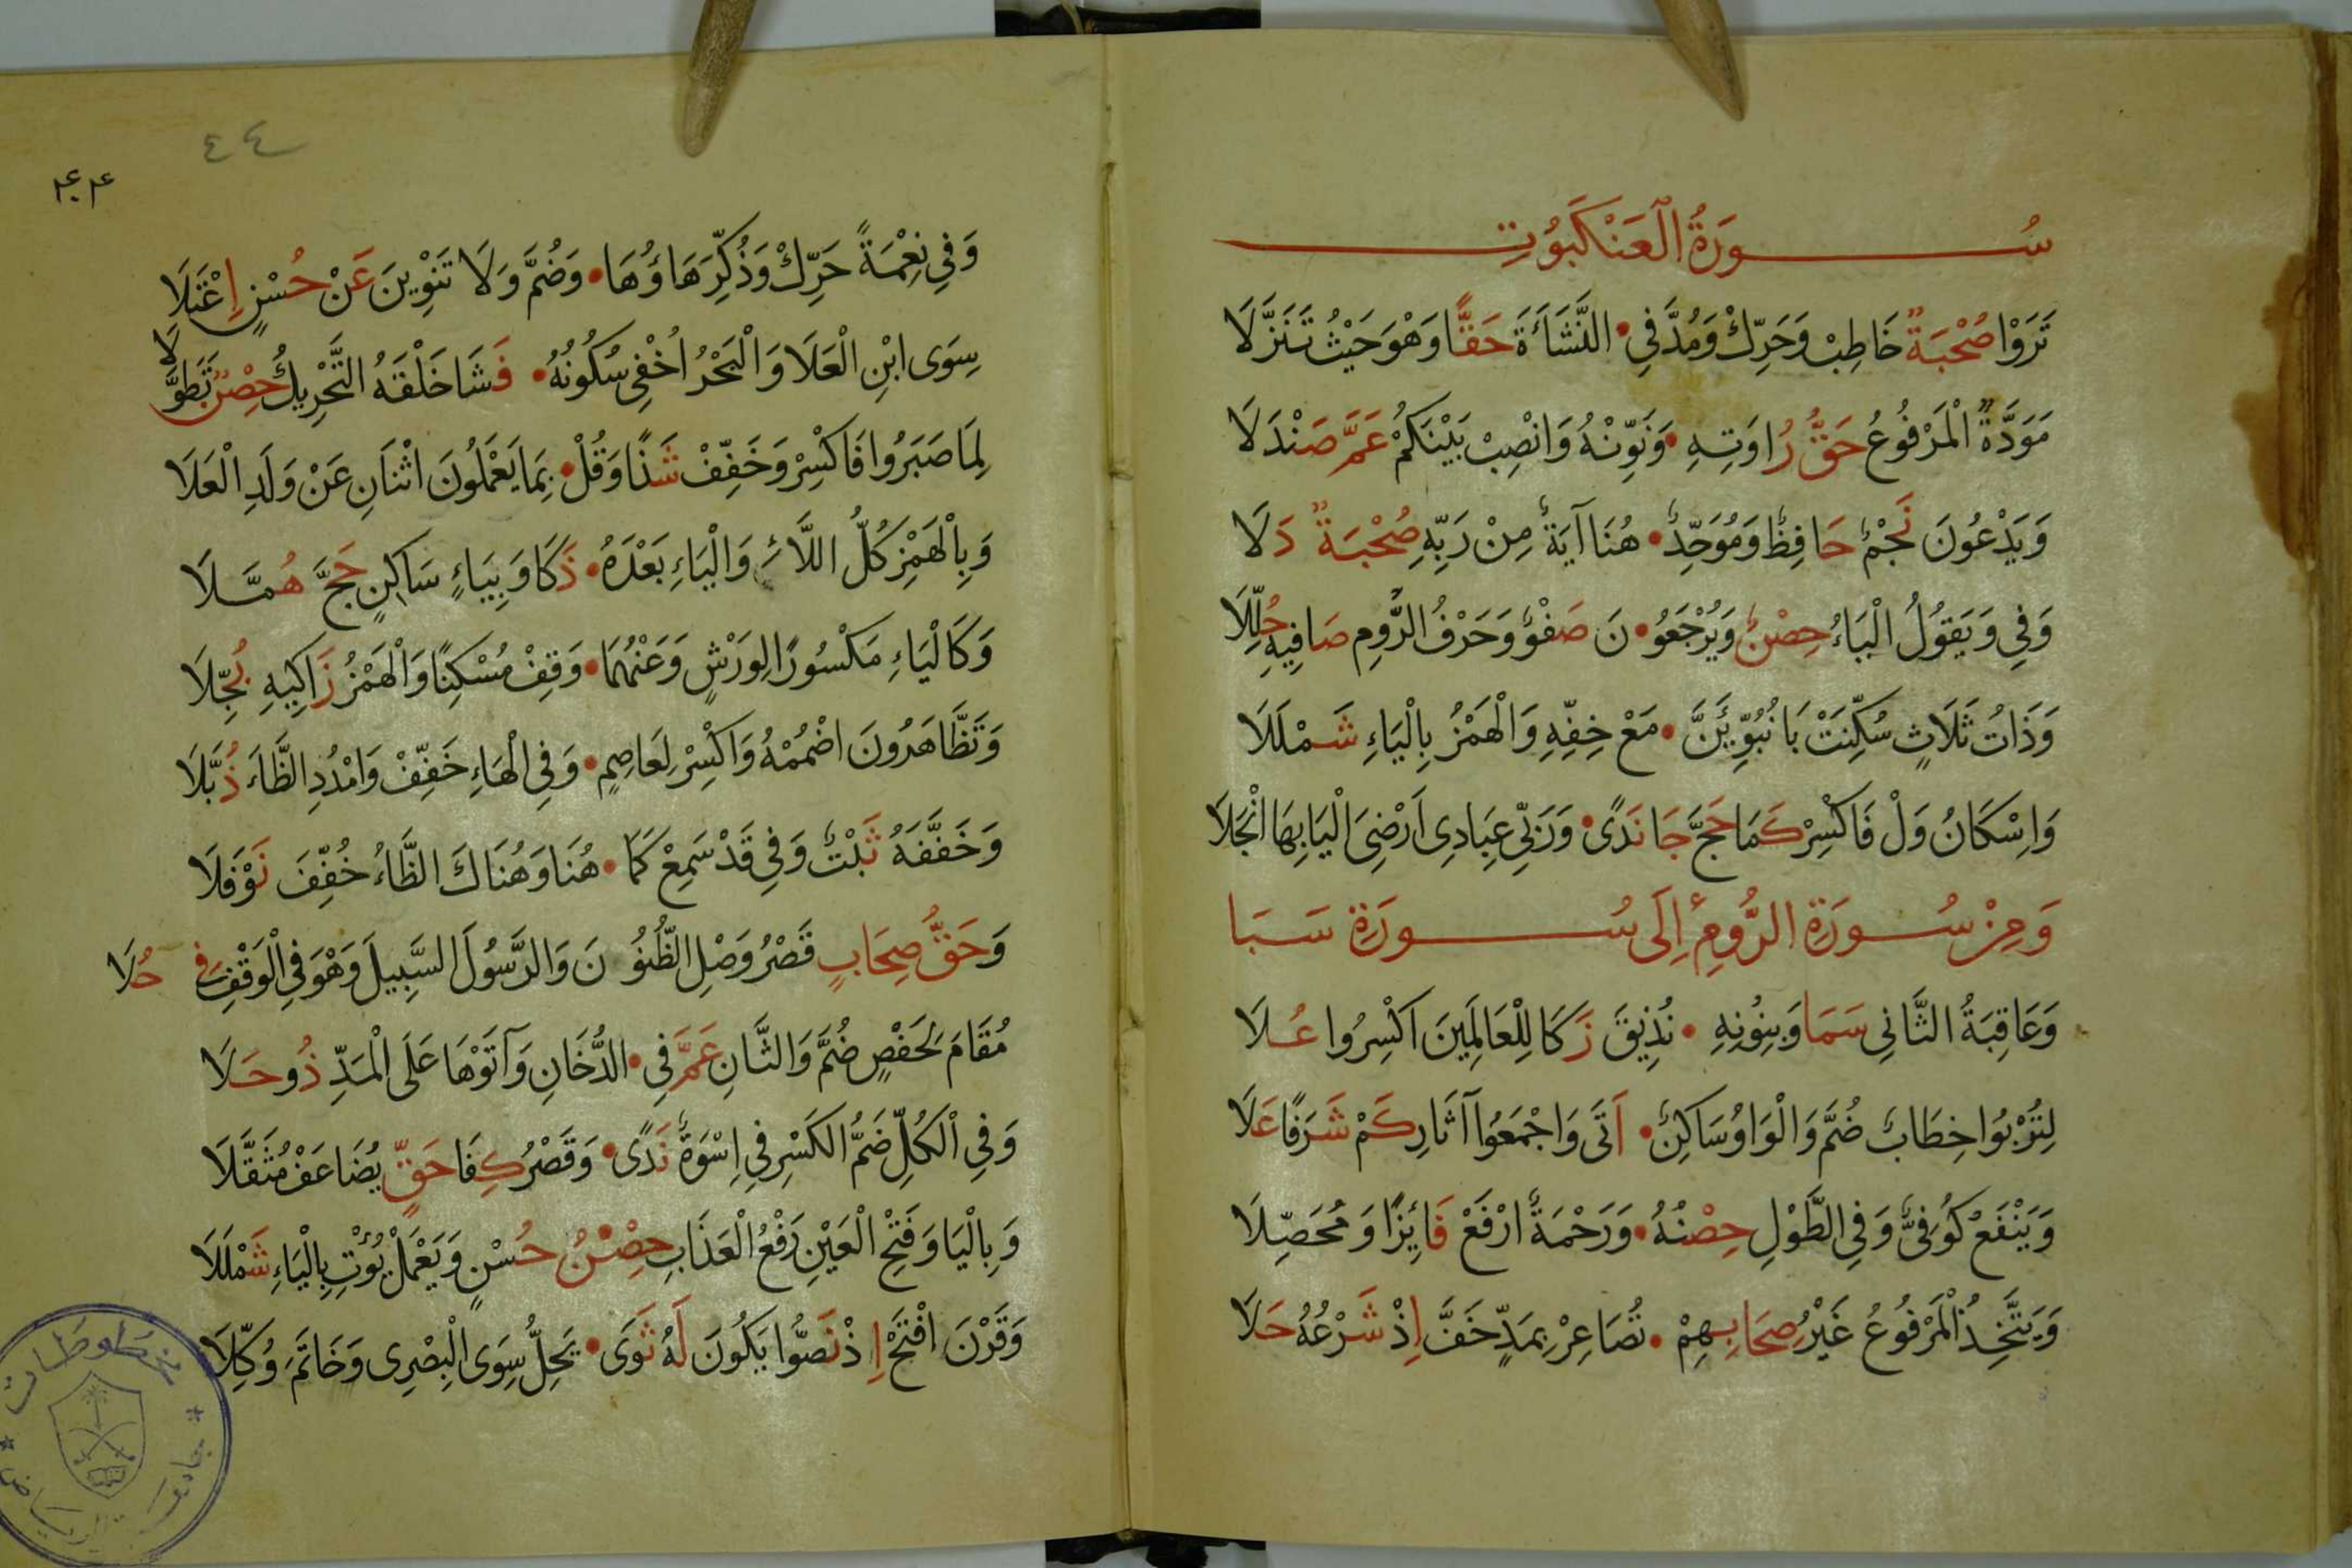 سُورَةُ الْعَنْكَبُوتِ
تَرَوْا صُحْبَةٌ خَاطِبْ وَحَرِّكْ وَمُدَّ فِي • النَّشَاءَةَ حَقًّا وَهْوَ حَيْثُ تَنَزَّلَا
مَوَدَّةً الْمَرْفُوعُ حَقُّ رُاوَتِهِ • وَنَوِّنْهُ وَانْصِبْ بَيْنَكُمْ عَمَّ صَنْدَلَا
وَيَدْعُونَ نَجْمٌ حَافِظٌ وَمُوَحِّدٌ • هُنَا آيَةٌ مِنْ رَبِّهِ صُحْبَةٌ دَلَا
وَفِي وَيَقُولُ الْيَاءُ حِصْنٌ وَيُرْجَعُو • نَ صَفْوٌ وَحَرْفُ الرُّومِ صَافِيهِ حُلِّلَا
وَذَاتُ ثَلَاثٍ سُكِّنَتْ بَا نُبَوِّئَنَّ • مَعْ خِفِّهِ وَالْهَمْزُ بِالْيَاءِ شَمْلَلَا
وَاِسْكَانُ وَلْ فَاكْسِرْ كَمَا حَجَّ جَا نَدًى • وَرَبِّي عِبَادِي اَرْضِيَ الْيَا بِهَا انْجَلَا
وَمِنْ سُورَةِ الرُّومِ اِلَى سُورَةِ سَبَا
وَعَاقِبَةُ الثَّانِي سَمَا وَبِنُونِهِ • نُذِيقَ زَكَا لِلْعَالَمِينَ اكْسِرُوا عُلَا
لِتُرْبُوا خِطَابٌ ضُمَّ وَالْوَاوُ سَاكِنٌ • اَتَى وَاجْمَعُوا آثَارِ كَمْ شَرَفًا عَلَا
وَيَنْفَعُ كُوفِيٌّ وَفِي الطَّوْلِ حِصْنُهُ • وَرَحْمَةً ارْفَعْ فَائِزًا وَمُحَصِّلَا
وَيَتَّخِذُ الْمَرْفُوعُ غَيْرُ صِحَابِهِمْ • تُصَاعِرْ بِمَدٍّ خَفَّ اِذْ شَرْعُهُ حَلَا
٤٤
وَفِي نِعْمَةً حَرِّكْ وَذُكِّرَ هَاؤُهَا • وَضُمَّ وَلَا تَنْوِينَ عَنْ حُسْنٍ اِعْتَلَا
سِوَى ابْنِ الْعَلَا وَالْبَحْرُ اُخْفِي سُكُونُهُ • فَشَا خَلْقَهُ التَّحْرِيكُ حِصْنٌ تَطَوَّلَا
لِمَا صَبَرُوا فَاكْسِرْ وَخَفِّفْ شَذًا وَقُلْ • بِمَا يَعْمَلُونَ اثْنَانِ عَنْ وَلَدِ الْعَلَا
وَبِالْهَمْزِ كُلُّ اللَّاءِ وَالْيَاءِ بَعْدَهُ • ذَكَا وَبِيَاءٍ سَاكِنٍ حَجَّ هُمَّلَا
وَكَالْيَاءِ مَكْسُورًا لِوَرْشٍ وَعَنْهُمَا • وَقِفْ مُسْكِنًا وَالْهَمْزُ زَاكِيهِ بُجِّلَا
وَتَظَّاهَرُونَ اضْمُمْهُ وَاكْسِرْ لِعَاصِمٍ • وَفِي الْهَاءِ خَفِّفْ وَامْدُدِ الظَّاءَ ذُبَّلَا
وَخَفَّفَهُ ثَبْتٌ وَفِي قَدْ سَمِعْ كَمَا • هُنَا وَهُنَاكَ الظَّاءُ خُفِّفَ نَوْفَلَا
وَحَقُّ صِحَابٍ قَصْرُ وَصْلِ الظُّنُونَ وَالرَّسُولَ السَّبِيلَ وَهْوَ فِي الْوَقْفِ فِي حُلَا
مُقَامَ لِحَفْصٍ ضُمَّ وَالثَّانِ عَمَّ فِي • الدُّخَانِ وَآتَوْهَا عَلَى الْمَدِّ ذُو حَلَا
وَفِي الْكُلِّ ضَمُّ الْكَسْرِ فِي اِسْوَةٌ نَدًى • وَقَصْرُ كِفَا حَقٍّ يُضَاعَفْ مُثَقَّلَا
وَبِالْيَا وَفَتْحِ الْعَيْنِ رَفْعُ الْعَذَابِ حِصْنُ حُسْنٍ وَيَعْمَلْ يُؤْتِ بِالْيَاءِ شَمْلَلَا
وَقَرْنَ افْتَحْ اِذْ نَصُّوا يَكُونَ لَهُ ثَوَى • يَحِلُّ سِوَى الْبِصْرِي وَخَاتَمَ وُكِّلَا
مخطوطات
جامعة الرياض